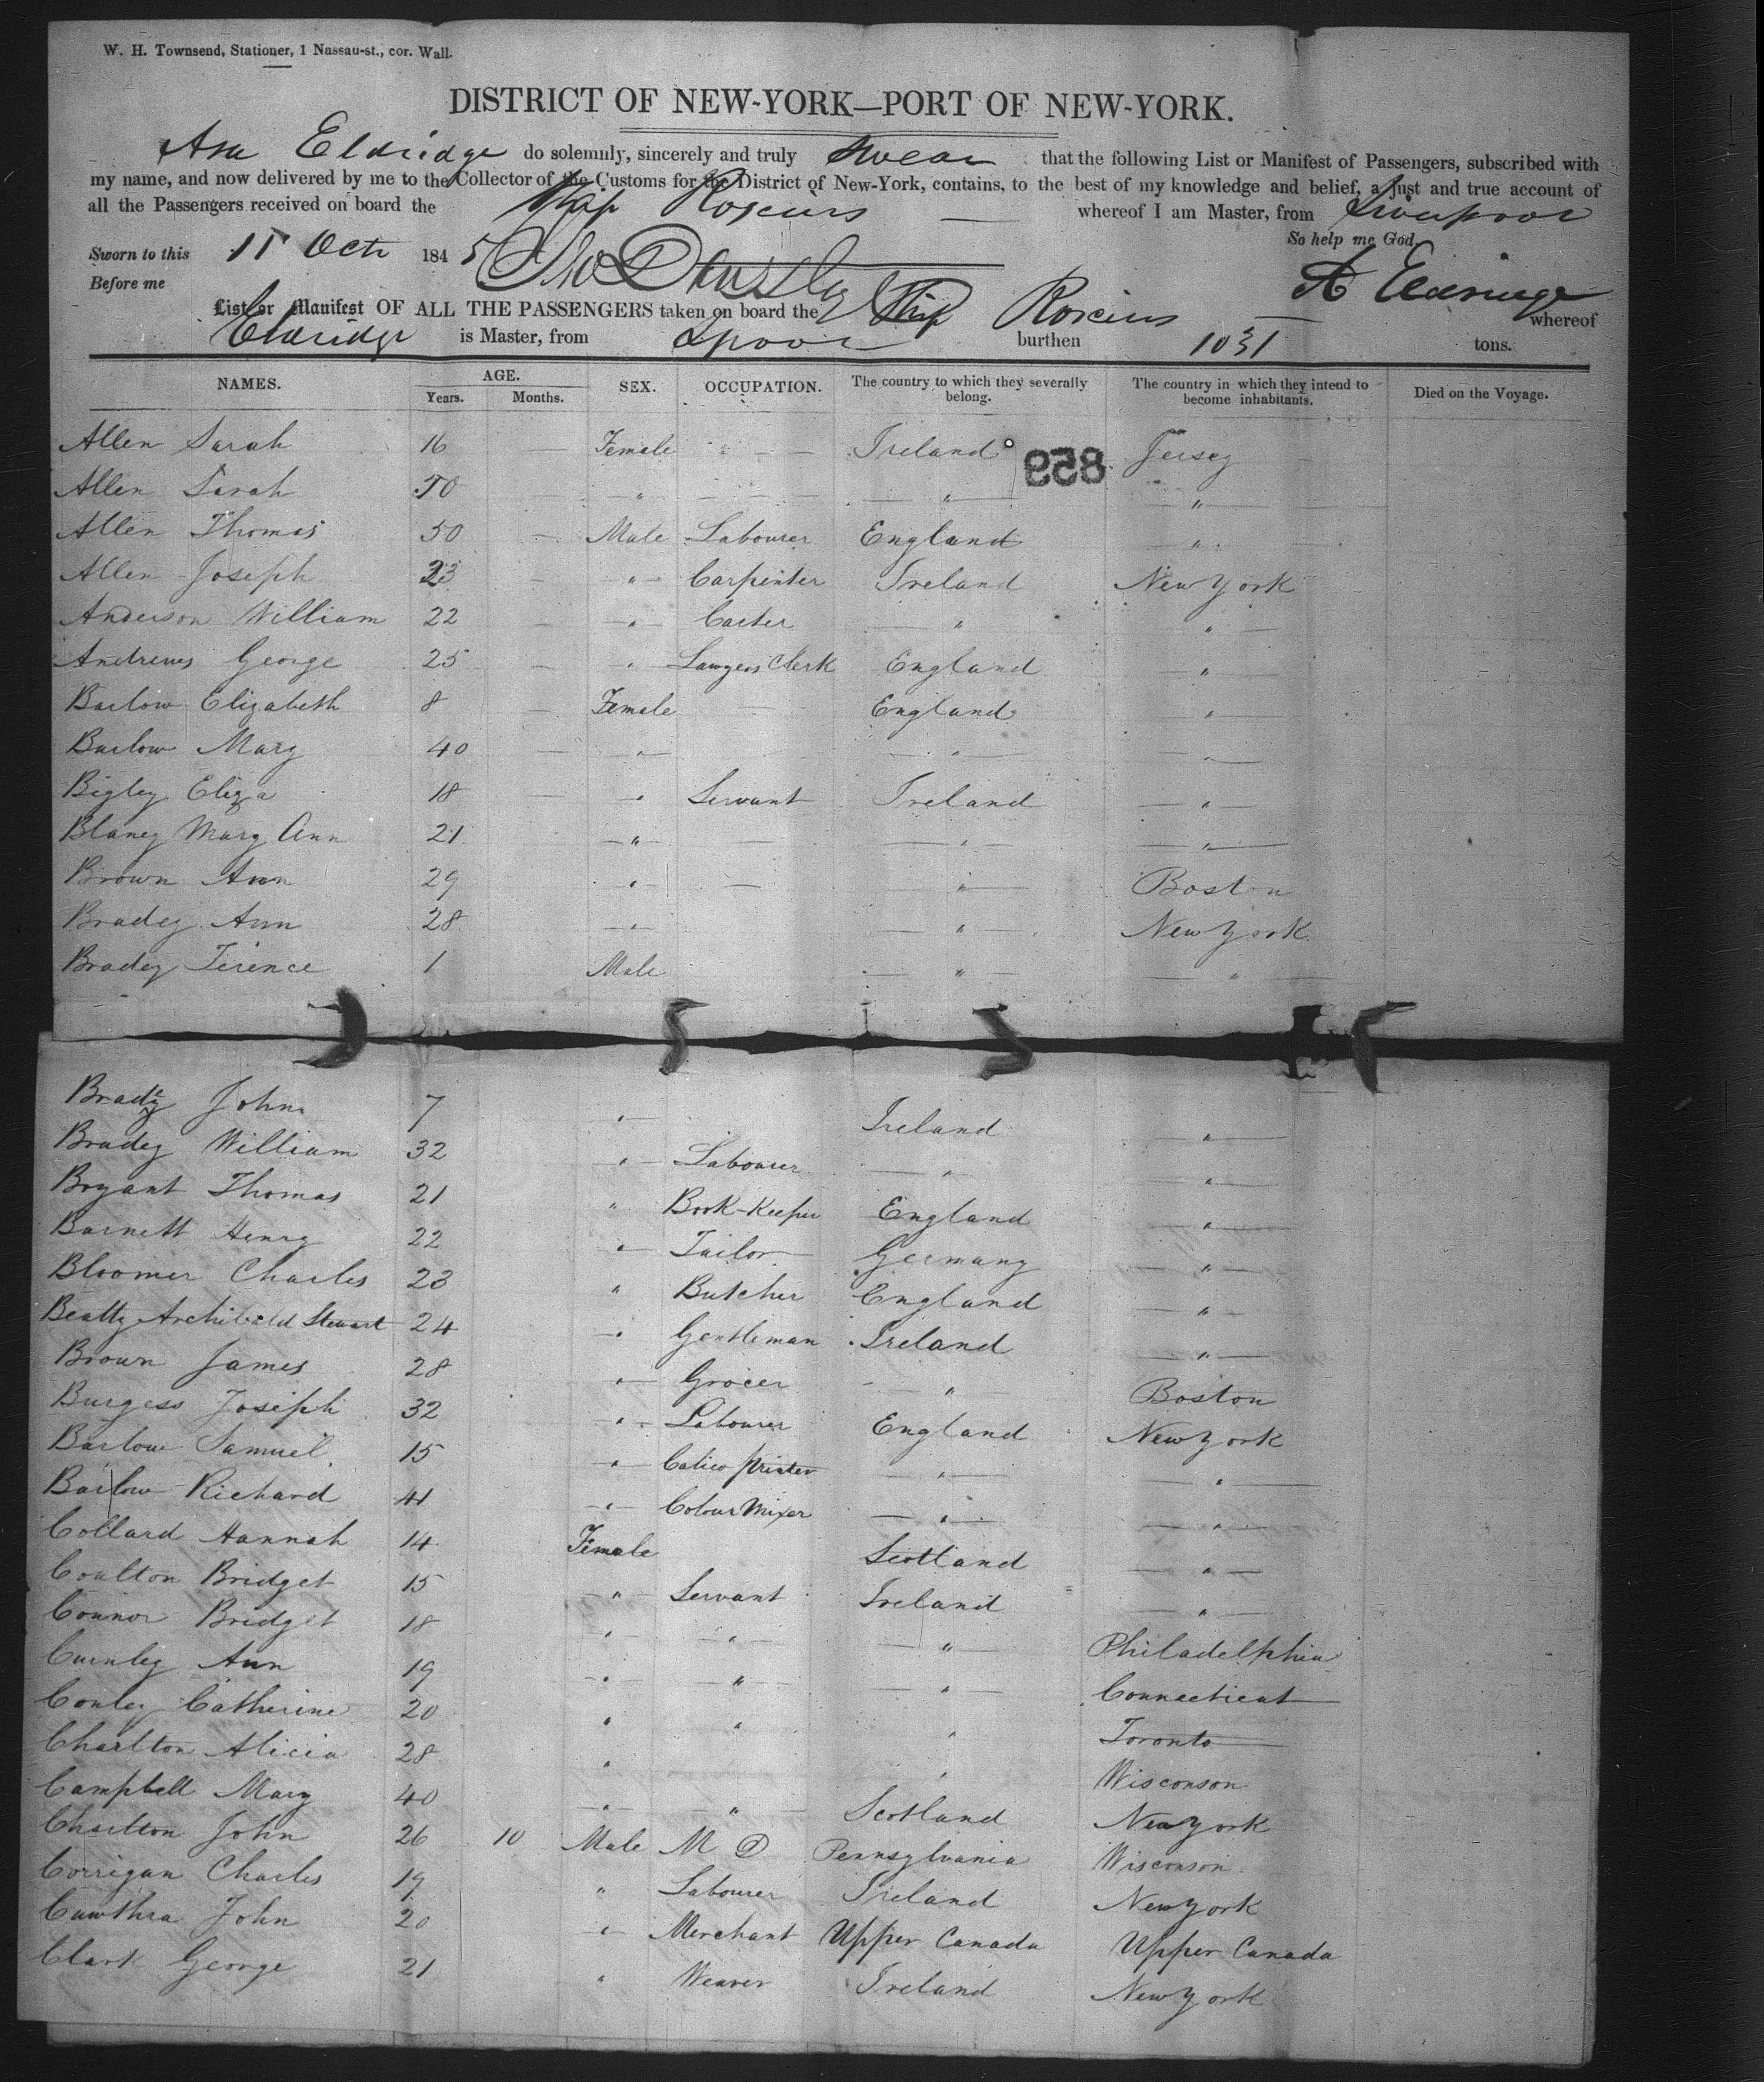 W. H. Townsend, Stationer, 1 Nassau-st., cor. Wall.
DISTRICT OF NEW-YORK—PORT OF NEW-YORK.
Asa Eldridge do solemnly, sincerely and truly swear that the following List or Manifest of Passengers, subscribed with
my name, and now delivered by me to the Collector of the Customs for the District of New-York, contains, to the best of my knowledge and belief, a just and true account of
all the Passengers received on board the Ship Roscius whereof I am Master, from Liverpool
So help me God.
Sworn to this 11 Octr 1845
Before me
A Eldridge
List or Manifest OF ALL THE PASSENGERS taken on board the Ship Roscius whereof
Eldridge is Master, from Lpool burthen 1031 tons.
NAMES. AGE. Years. Months. SEX. OCCUPATION. The country to which they severally belong. The country in which they intend to become inhabitants. Died on the Voyage.
858
Allen Sarah 16 — Female — — Ireland Jersey
Allen Sarah 50 " — — — " "
Allen Thomas 50 — Male Labourer England "
Allen Joseph 23 — " Carpenter Ireland New York
Anderson William 22 — " Carter " "
Andrews George 25 — " Lawyers Clerk England "
Barlow Elizabeth 8 — Female — England "
Barlow Mary 40 — " " "
Bigley Eliza 18 — " Servant Ireland "
Blaney Mary Ann 21 " — " "
Brown Ann 29 " — " Boston
Bradey Ann 28 " " New York
Bradey Terence 1 Male " "
Bradey John 7 " Ireland "
Bradey William 32 " Labourer " "
Bryant Thomas 21 " Book-Keeper England "
Barnett Henry 22 " Tailor Germany "
Bloomer Charles 23 " Butcher England "
Beatty Archibald Stewart 24 " Gentleman Ireland "
Brown James 28 " Grocer " Boston
Burgess Joseph 32 " Labourer England New York
Barlow Samuel 15 " Calico Printer " "
Barlow Richard 41 " Colour Mixer " "
Collard Hannah 14 Female Scotland "
Coulton Bridget 15 " Servant Ireland "
Connor Bridget 18 " " " Philadelphia
Ann 19 " " " Connecticut
Conley Catherine 20 " " " Toronto
Charlton Alicia 28 " " Wisconson
Campbell Mary 40 " " Scotland New York
Charlton John 26 10 Male M D Pennsylvania Wisconson
Corrigan Charles 19 " Labourer Ireland New York
Cawthra John 20 " Merchant Upper Canada Upper Canada
Clark George 21 " Weaver Ireland New York